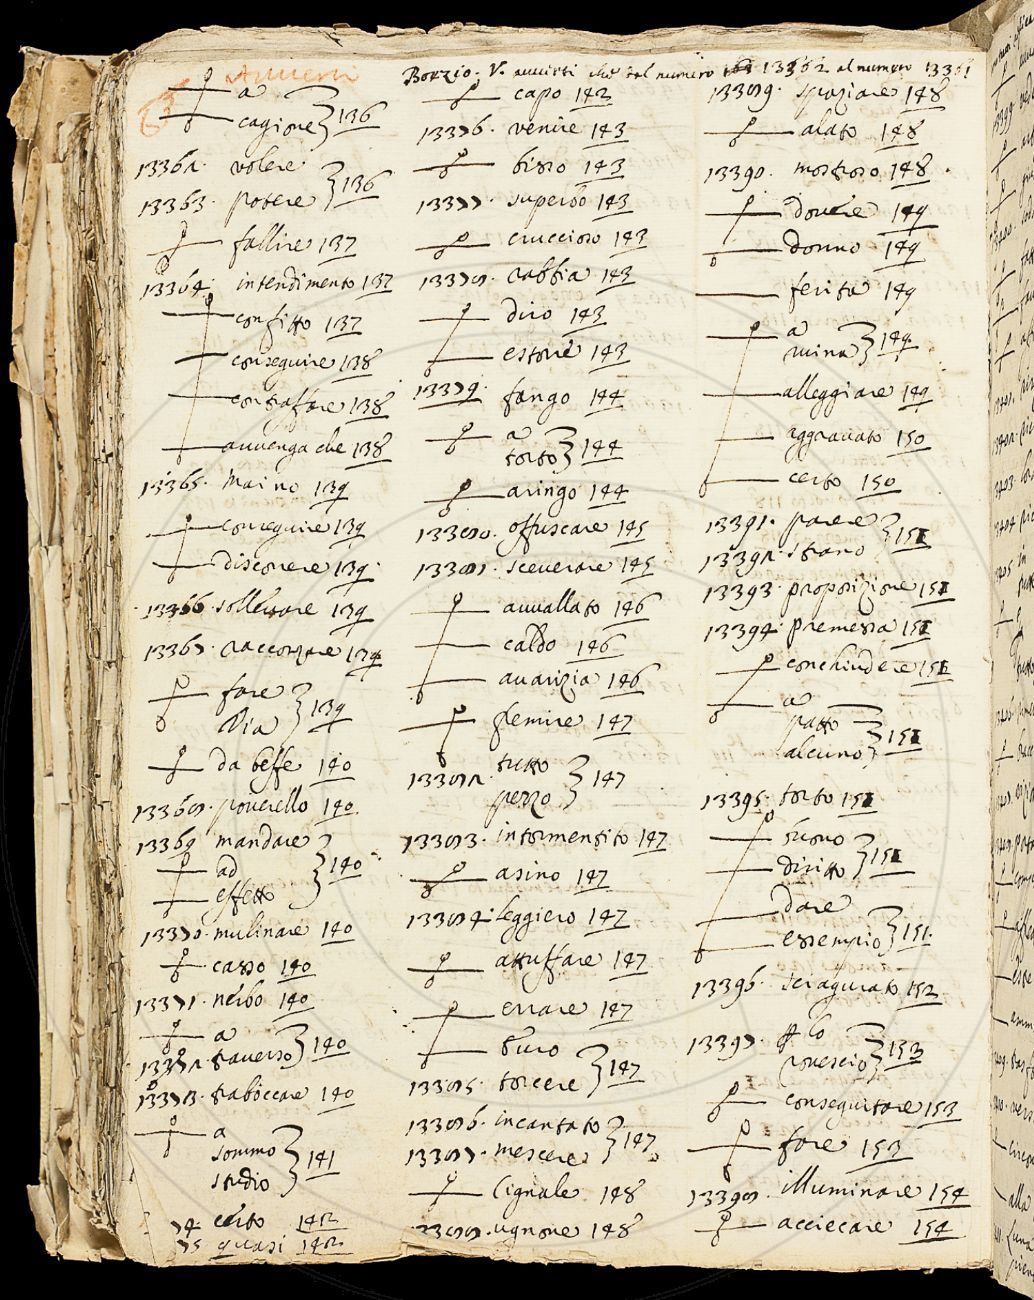 Borzio. V. avvisti che dal numero 13362 al numero 13361
a
cagione } 136
13362. volere
13363. potere } 136
fallire 137
13364. intendimento 137
confitto 137
conseguire 138
contrafare 138
avvenga che 138
13365. Maino 139
conseguire 139
discorrere 139
13366. sollevare 139
13367. raccorzare 139
fare
Via } 139
da beffe 140
13368. poverello 140
13369 mandare
ad
effetto } 140
13370. mulinare 140
casso 140
13371. nerbo 140
a
13372. traverso } 140
13373. traboccare 140
a
sommo
studio } 141
74. certo 142
75 quasi 142
capo 142
13376. venire 143
bisso 143
13377. superbo 143
cruccioso 143
13378. rabbia 143
diro 143
estorre 143
13379. fango 144
a
torto } 144
aringo 144
13380. offuscare 145
13381. sceverare 145
avvallato 146
caldo 146
avarizia 146
gemire 147
13382. tutto
pezzo } 147
13383. intormentito 147
asino 147
13384. leggiero 147
attuffare 147
errare 147
duro
13385. torcere } 147
13386. incantato
13387. mescere } 147
Cignale 148
13388. ugnone 148
13389. spaziare 148
alato 148
13390. mostroso 148
dovere 149
donno 149
ferita 149
a
ruina } 149
alleggiare 149
aggravato 150
certo 150
13391. parere
13392. strano } 151
13393. proposizione 151
13394. premessa 151
conchiudere 151
a
patto
alcuno } 151
13395. torto 151
suono
diritto } 151
dare
essempio } 151.
13396. sciagurato 152
13397. lo
rovescio } 153
conseguitare 153
fare 153
13398. illuminare 154
acciecare 154